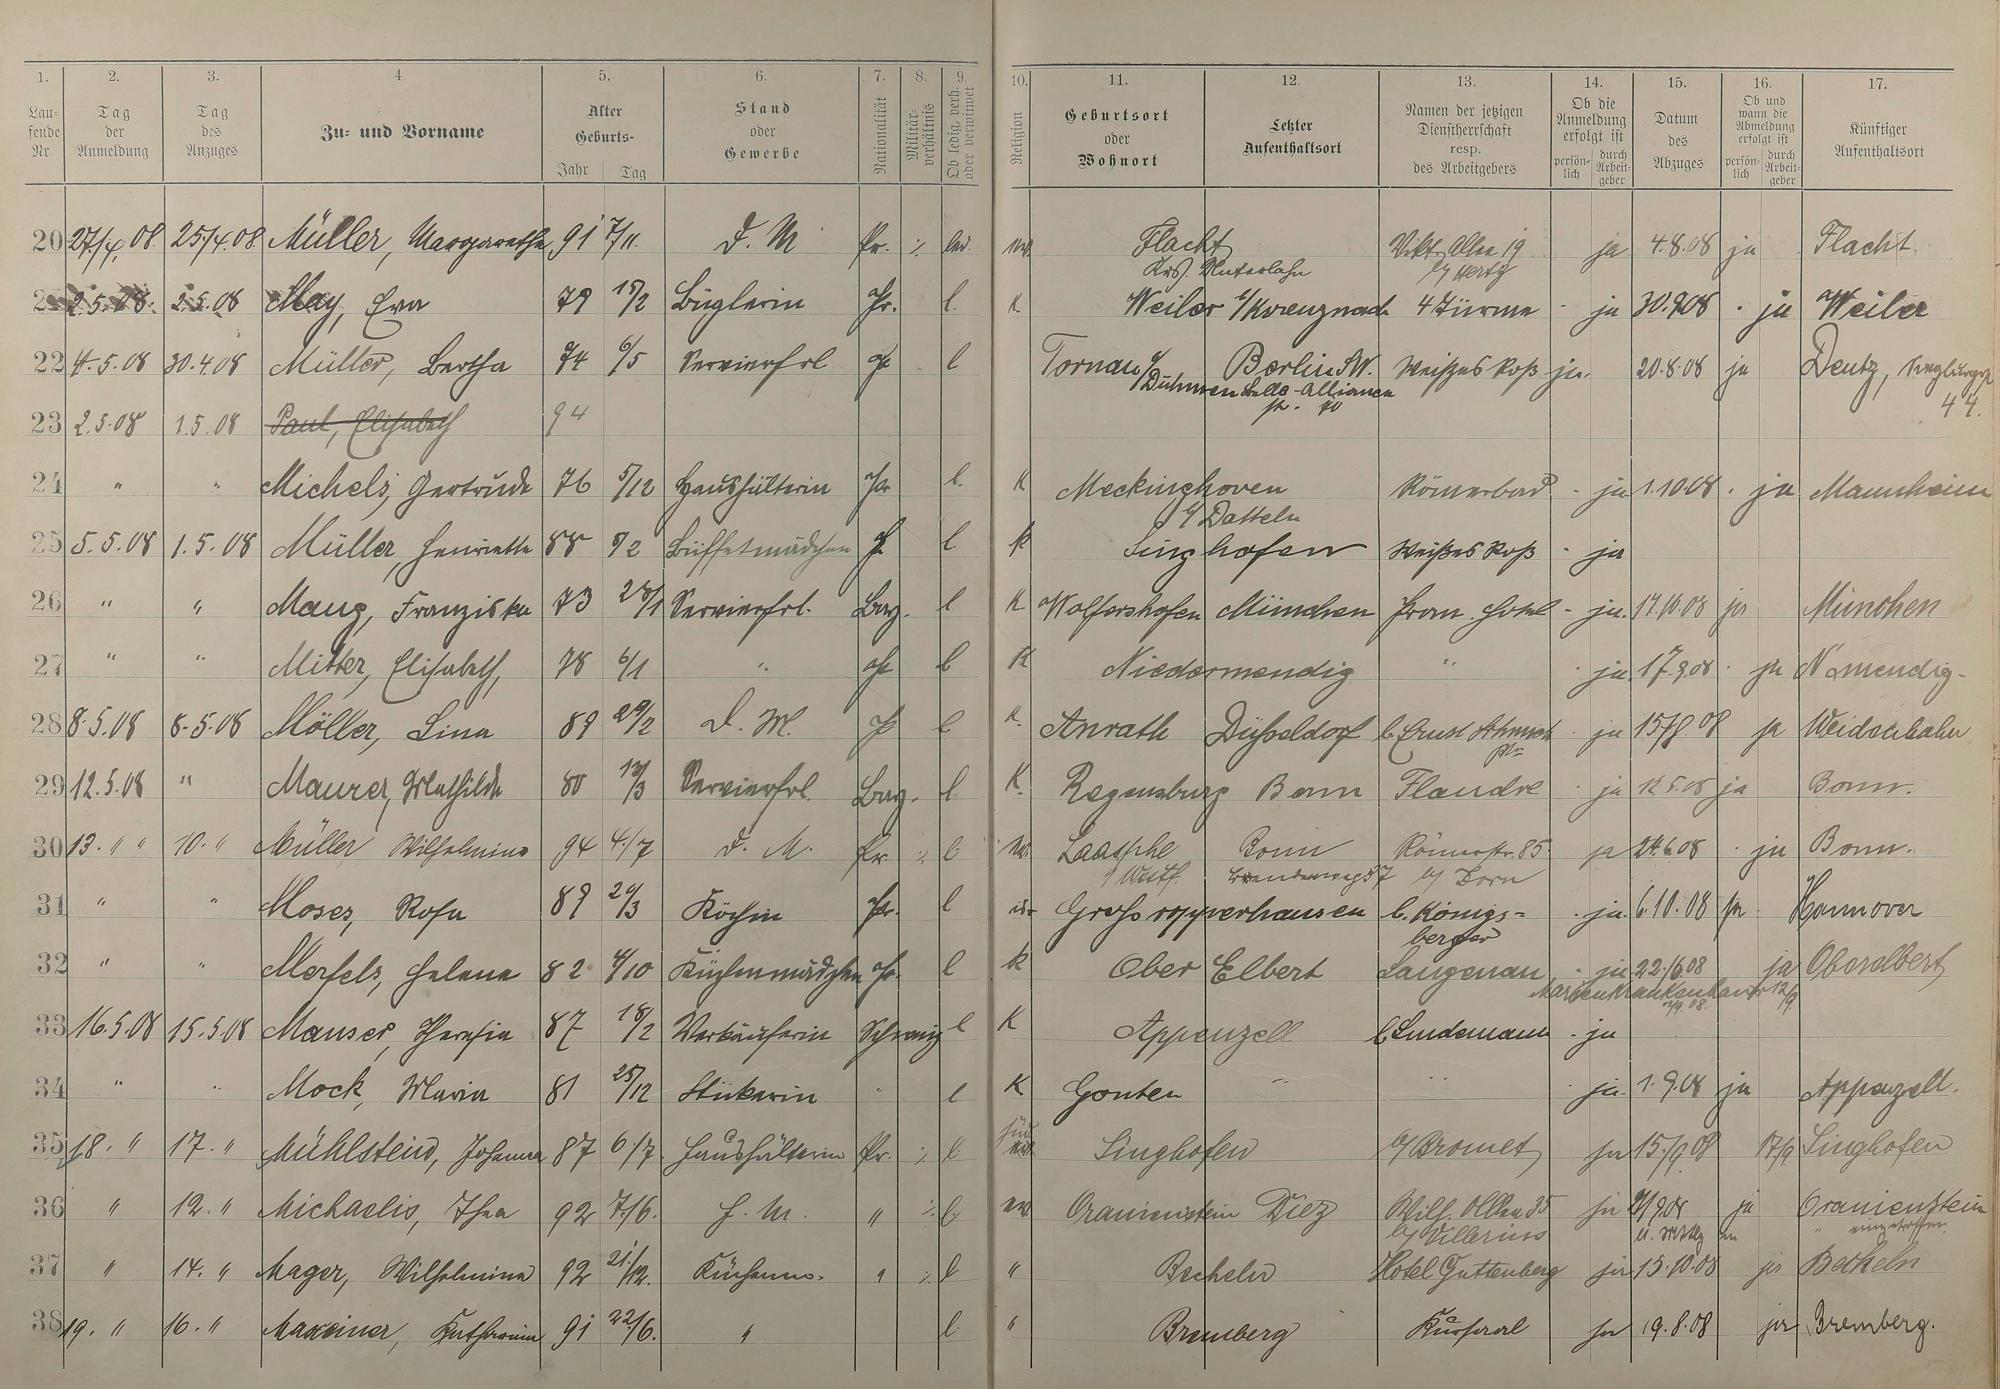 1. 2. 3. 4. 5. 6. 7. 8. 9. 10. 11. 12. 13. 14. 15. 16. 17.
Lau-fende Nr. Tag der Anmeldung Tag des Anzuges Zu- und Vorname Alter Geburts- Jahr Tag Stand oder Gewerbe Nationalität Militär-verhältnis Ob ledig, verh. oder verwitwet Religion Geburtsort oder Wohnort Letzter Aufenthaltsort Namen der jetzigen Dienstherrschaft resp. des Arbeitgebers Ob die Anmeldung erfolgt ist persön-lich durch Arbeit-geber Datum des Abzuges Ob und wann die Abmeldung erfolgt ist persön-lich durch Arbeit-geber Künftiger Aufenthaltsort
20 27/4.08. 25/4.08 Müller, Margarethe 91 7/11. D. M Pr. ./. led. ev. Flacht Vikt. Allee 19 ja 4.8.08 ja Flacht.
Krs. Unterlahn b/ Hertz
2.5.08. 2.5.08 May, Eva 79 15/2 Büglerin Pr. l. K Weiler b/Kreuznach 4 Türme - ja 30.9.08 . ja Weiler
22 4.5.08 30.4.08 Müller, Bertha 74 6/5 Servierfrl Pr l Tornau b/ Berlin SW. Weißes Roß ja. 20.8.08 ja Deutz,
Dühmen Belle-Alliance 44.
23 2.5.08 1.5.08 Paul, Elisabeth 94
24 " " Michels, Gertrude 76 5/12 Haushälterin Pr l. K Meckinghoven Römerbad - ja 1.10.08 . ja Mannheim
b/ Datteln
25 5.5.08 1.5.08 Müller, Henriette 88 5/2 Büffetmädchen Pr l K Singhofen Weißes Roß - ja
26 " " Mang, Franziska 73 28/1 Servierfrl. Bay. l K Wolfershofen München Prom. Hotel - ja. 17.10.08 ja München
27 " " Mitter, Elisabeth, 78 6/1 " Pr l K Niedermendig " . ja. 17.9.08 . ja N.mendig-
28 8.5.08 8.5.08 Möller, Lina 89 29/2 D. M. Pr l K. Anrath Düsseldorf b. Ernst . ja 15/8 08 ja Weidenhahn
29 12.5.08 " Maurer, Mathilde 80 13/3 Servierfrl. Bay. l K. Regensburg Bonn Flandre . ja 12.5.08 ja Bonn.
30 13. " " 10. " Müller Wilhelmine 94 4./7 D. M. Pr. ./. l. ev. Laasphe Bonn Römerstr. 85. ja 24.6.08 . ja Bonn.
i/ Westf. 57 b/ Dorn
31 " " Moses, Rosa 89 20/3 Köchin Pr. l isr Großropperhausen b. Königs= . ja. 6.10.08 ja. Hannover
berger
32 " " Merfels, Helena 82 4/10 Küchenmädchen Pr. l K Ober Elbert Langenau . ja 22./6 08 ja Oberelbert
Marienkrankenhaus 12/9.
33 16.5.08 15.5.08 Manser, Theresia 87 18/2 Verkäuferin Schweiz l K Appenzell b. Lindemann . ja
34 " " Mock, Maria 81 25/12 Stickerin " l K Gonten " " . ja. 1.9.08 ja Appenzell.
35 18. " 17. " Mühlstein, Johanna 87 6./7. Haushälterin Pr. ./. l. jüd Singhofen b/ Bromet ja 15./9 08 17/9 Singhofen
36 " 12. " Michaelis, Thea 92 7./6. H. M. " ./. l. ev Oranienstein Diez Wilh. Allee 35 ja 9.08 ja Oranienstein
b/ Villerius " eingetroffen.
37 " 14. " Mager, Wilhelmine 92 21./12. Küchenm. " ./. l " Becheln Hotel Guttenberg ja 15.10.08 ja Becheln
38 19. " 16. " Maxeiner, Katharina 91 22./6. " l. " Bremberg Kursaal ja 19.8.08 ja Bremberg.